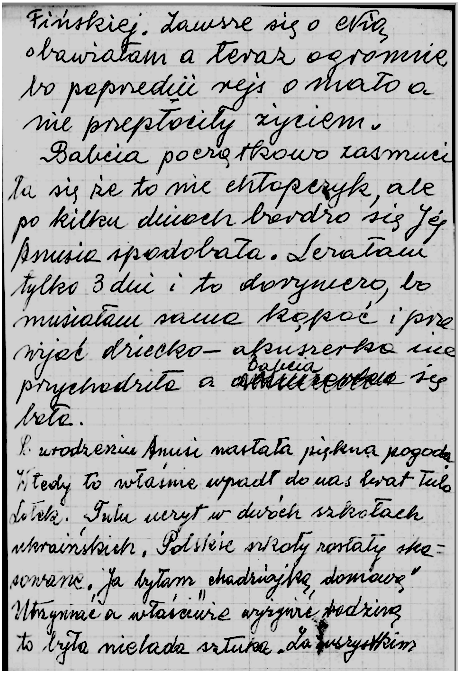 Fińskiej. Zawsze się o Nią
obawiałam a teraz ogromnie
bo poprzedni rejs o mało a
nie przepłaciły życiem.
Babcia początkowo zasmuci
ła się że to nie chłopczyk, ale
po kilku dniach bardzo się Jej
Anusia spodobała. Leżałam
tylko 3 dni i to dorywczo, bo
musiałam sama kąpać i prze
wijać dziecko – akuszerka nie
przychodziła a babcia się
bała.
Z urodzeniem Anusi nastała piękna pogoda
Wtedy to właśnie wpadł do nas brat Tula
Lolek. Tulu uczył w dwóch szkołach
ukraińskich. Polskie szkoły zostały ska-
sowane. Ja byłam "chadziajką domową"
Utrzymać a właściwie wyżywić rodzinę
to była nielada sztuka. Za wszystkim